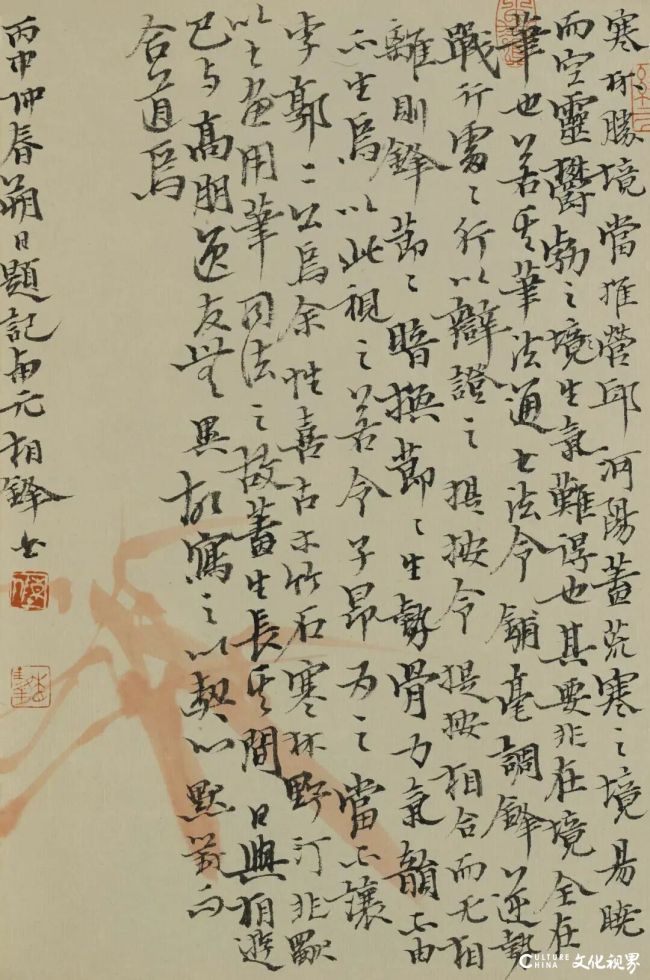 寒林勝境當推營邱河陽蓋荒寒之境易曉
而空靈鬱勃之境生氣難得也其要非在境全在
筆也若其筆法通书法令鋪毫調鋒以逆勢
戰行處之行以辯證之提按令提按相合而无相
離則鋒節之暗換節之生勢骨力氣韻亦由
而生焉以此視之若令子昂為之當不讓
李郭二公焉余性喜古木竹石寒林野汀非獨
以之畫用筆同法之故蓋生長其間日與相遊
已与高朋逸友無異故寫之以契心默萬而
合道焉
丙申仲春朔日題記南元相鋒书
CULTURE CHINA 文化視界